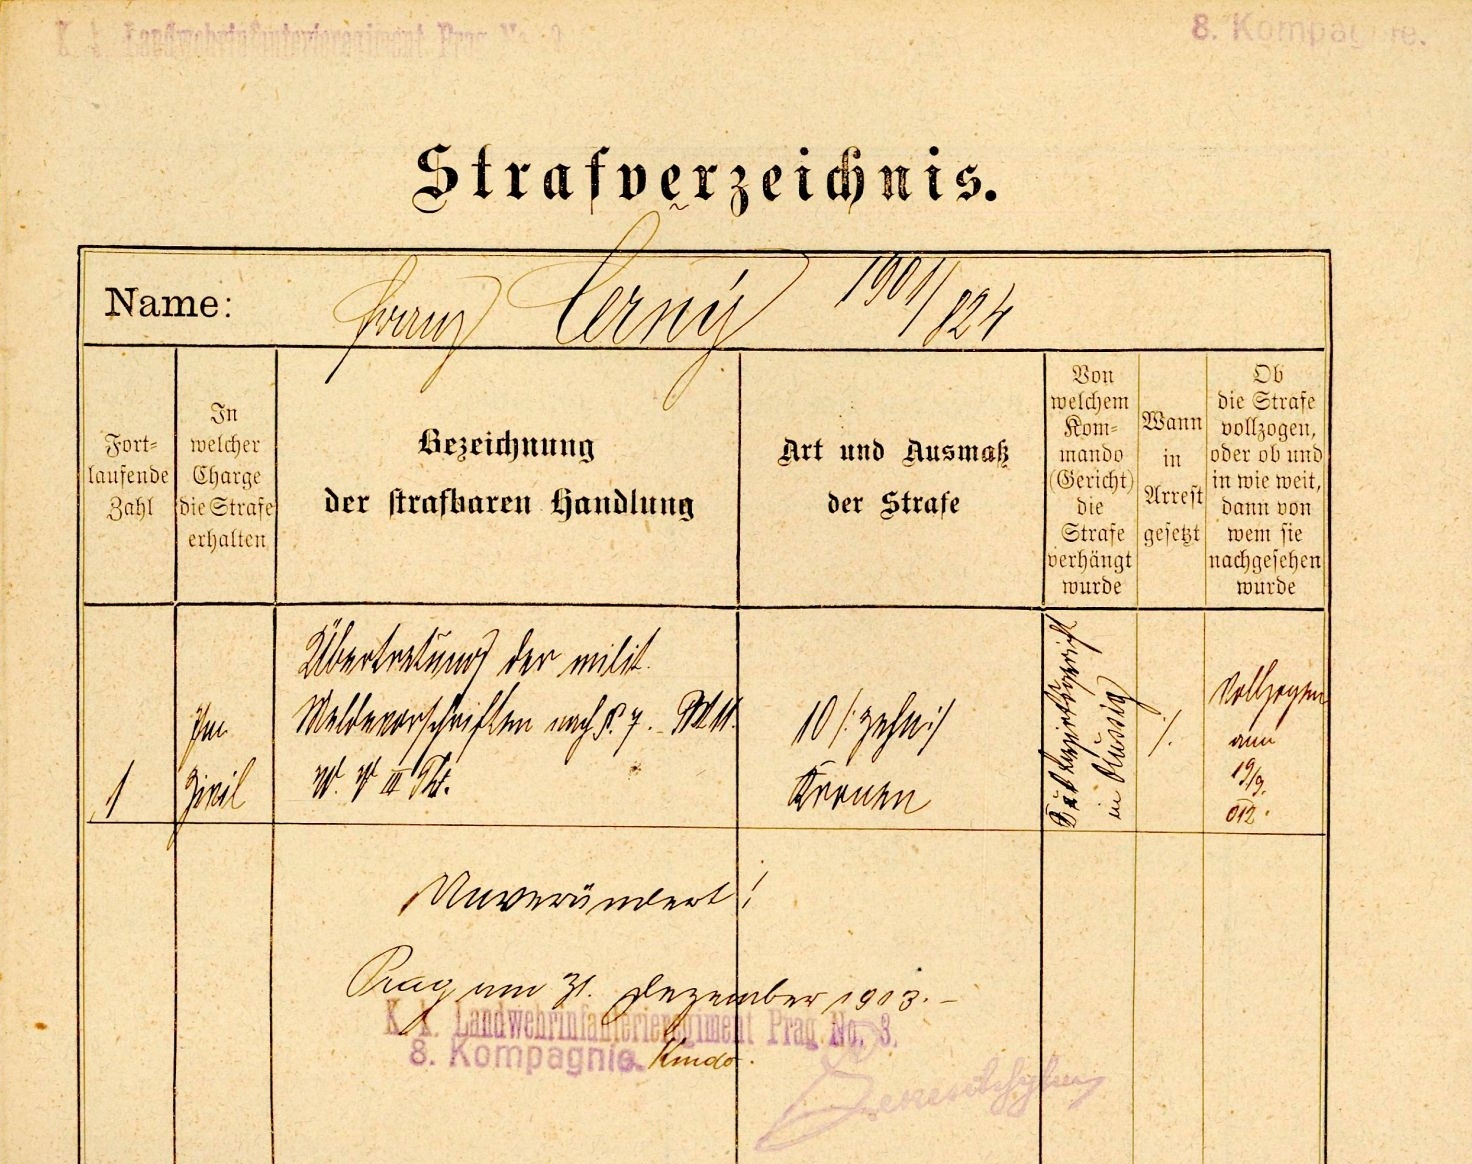 K. k. Landwehrinfanterieregiment Prag No. 3
8. Kompagnie.
Strafverzeichnis.
Name: Franz Černý 1901/824
Fort-
laufende
Zahl
In
welcher
Charge
die Strafe
erhalten
Bezeichnung
der strafbaren Handlung
Art und Ausmaß
der Strafe
Von
welchem
Kom-
mando
(Gericht)
die
Strafe
verhängt
wurde
Wann
in
Arrest
gesetzt
Ob
die Strafe
vollzogen,
oder ob und
in wie weit,
dann von
wem sie
nachgesehen
wurde
1
Im
Zivil
Übertretung der milit.
Meldevorschriften nach §. 7.
W. V III Th.
10 /: zehn :/
Kronen
Bezirksgericht
in Aussig
./.
Vollzogen
am
19/9.
912.
Unverändert!
Prag am 31. Dezember 1913.-
K. k. Landwehrinfanterieregiment Prag No. 3.
8. Kompagnie. Kmdo.